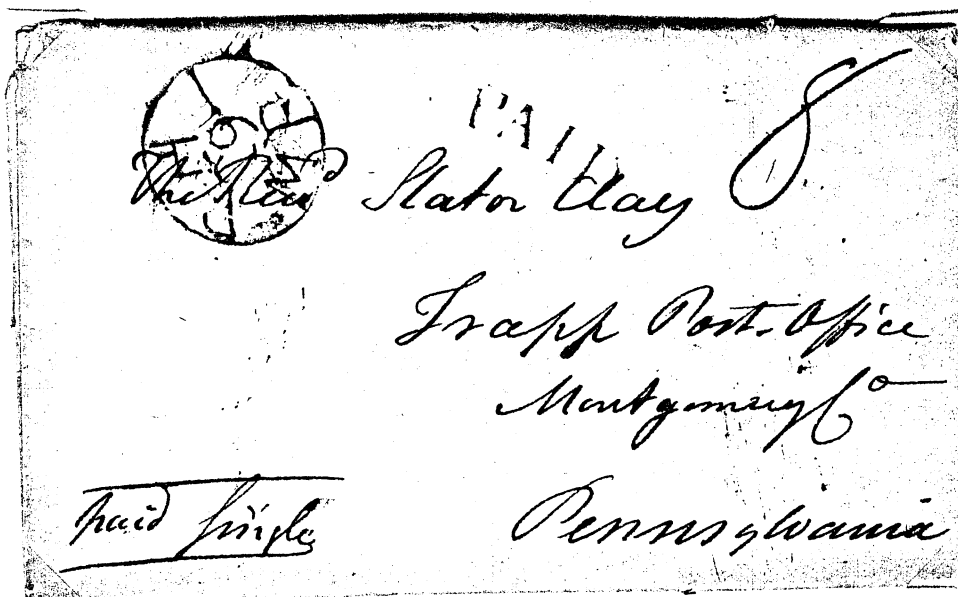 PAID 8
The Revd Slator Clay
Trapp Post-Office
Montgomery Co
Pennsylvania
paid Single